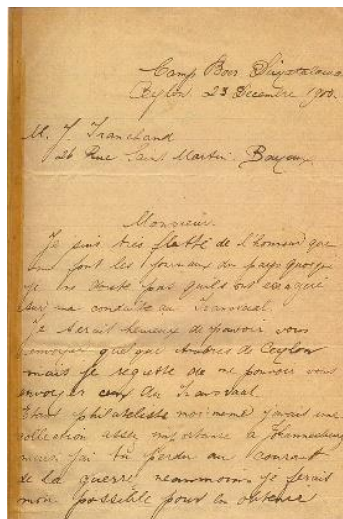 Camp Boer Diyatalawa
Ceylon 23 Decembre 1900.
M. J Tranchand
26 Rue Saint Martin. Bayeux
Monsieur.
Je suis très flatté de l'honneur que
me font les journaux du pays quoique
je ne doute pas quils ont exagéré
sur ma conduite au Transvaal
Je serait heureux de pouvoir vous
envoyer quelque timbres de Ceylon
mais je regrette de ne pouvoir vous
envoyer ceux du Transvaal
Etant philateliste moi meme j'avais une
collection assez importante a Johannesburg
mais j'ai tu perdu au courant
de la guerre, neanmoins je ferais
mon possible pour en obtenir